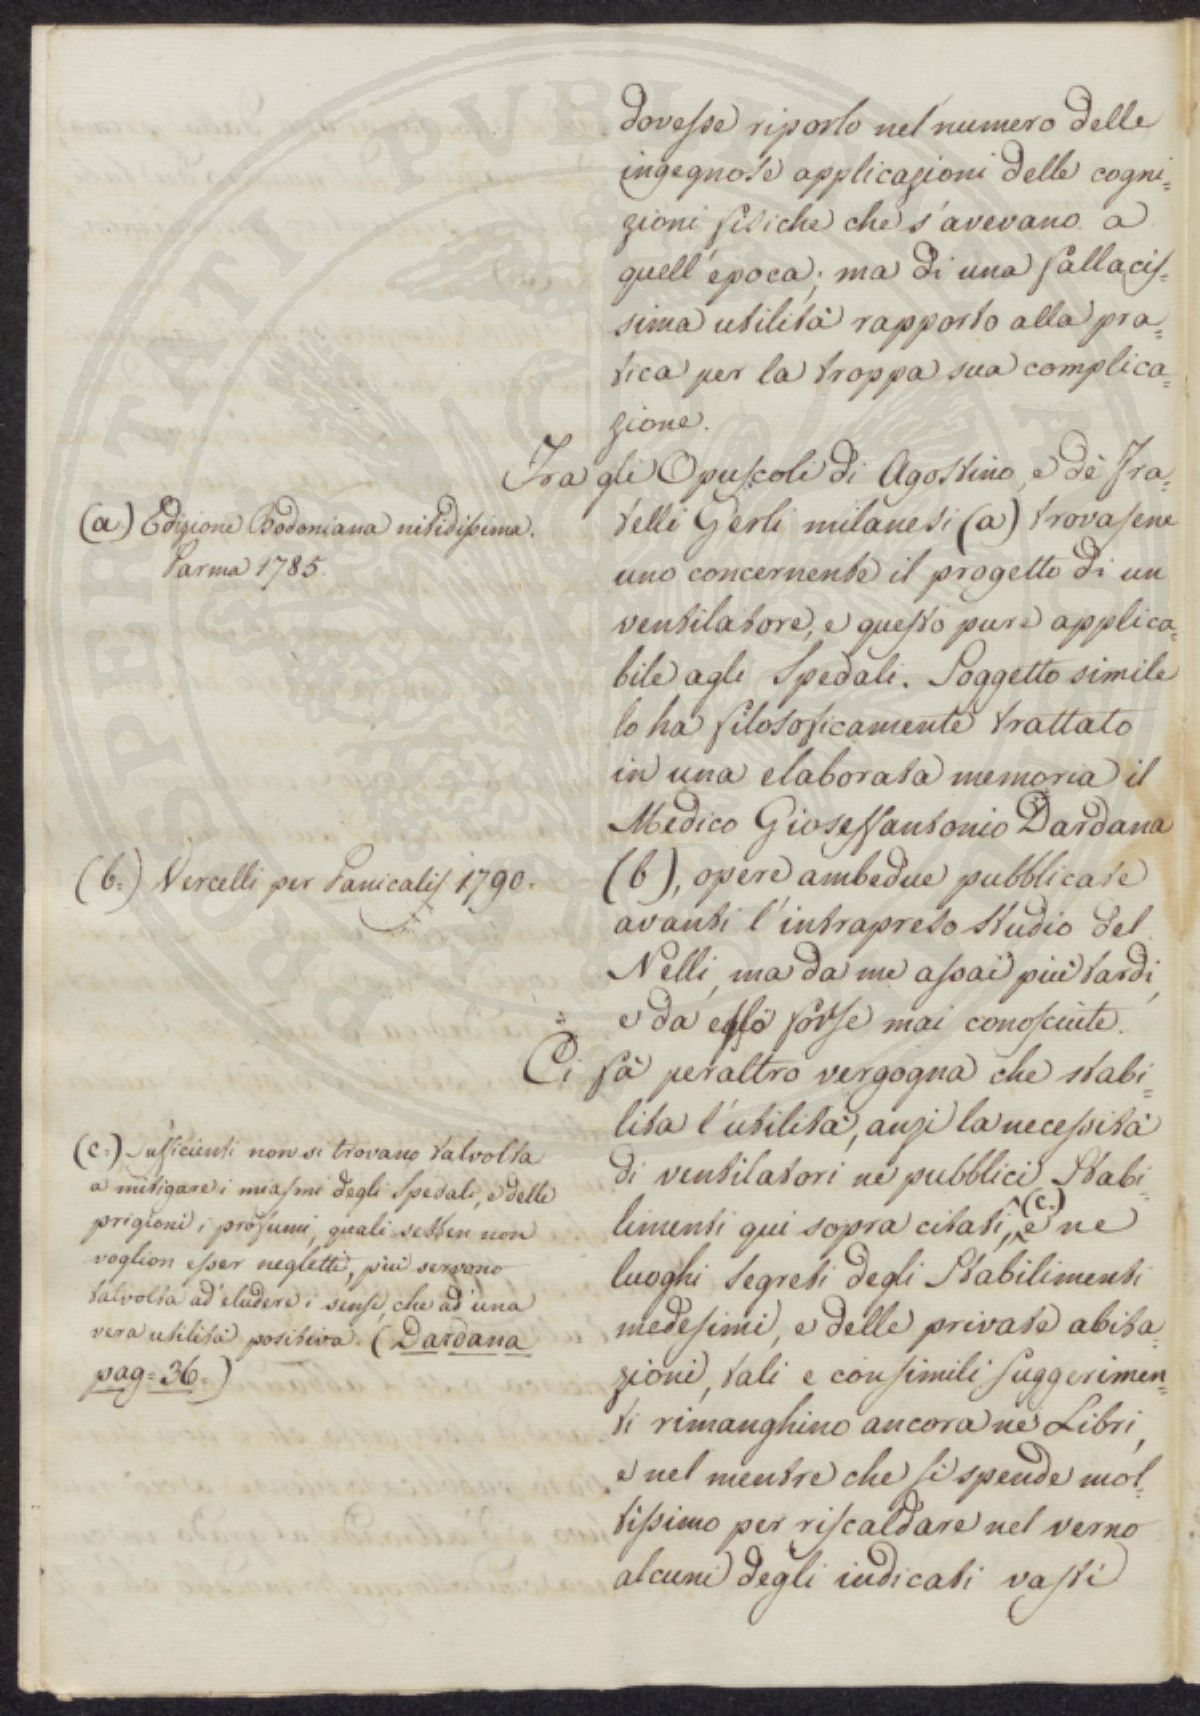 dovesse riporlo nel numero delle
ingegnose applicazioni delle cogni=
zioni fisiche che s'avevano a
quell'epoca; ma di una fallacis=
sima utilità rapporto alla pra=
tica per la troppa sua complica=
zione.
Fra gli Opuscoli di Agostino, e de' Fra=
telli Gerli milanesi (a) trovasene
uno concernente il progetto di un
ventilatore, e questo pure applica=
bile agli Spedali. Soggetto simile
lo ha filosoficamente trattato
in una elaborata memoria il
Medico Gioseffantonio Dardana
(b), opere ambedue pubblicate
avanti l'intrapreso studio del
Nelli, ma da me assai più tardi,
e da esso forse mai conosciute.
Ci fà peraltro vergogna che stabi=
lita l'utilità, anzi la necessità
di ventilatori ne pubblici Stabi=
limenti qui sopra citati, (c.) e ne
luoghi segreti degli Stabilimenti
medesimi, e delle private abita=
zioni, tali e consimili suggerimen=
ti rimanghino ancora ne' Libri,
e nel mentre che si spende mol=
tissimo per riscaldare nel verno
alcuni degli indicati vasti
(a) Edizione Bodoniana nitidissima.
Parma 1785.
(b.) Vercelli per Panicalis 1790.
(c.) Sufficienti non si trovano talvolta
a mitigare i miasmi degli Spedali, e delle
prigioni i profumi, quali sebben non
voglion esser negletti, più servono
talvolta ad eludere i sensi, che ad una
vera utilità positiva. (Dardana
pag. 36.)
PERUSIA